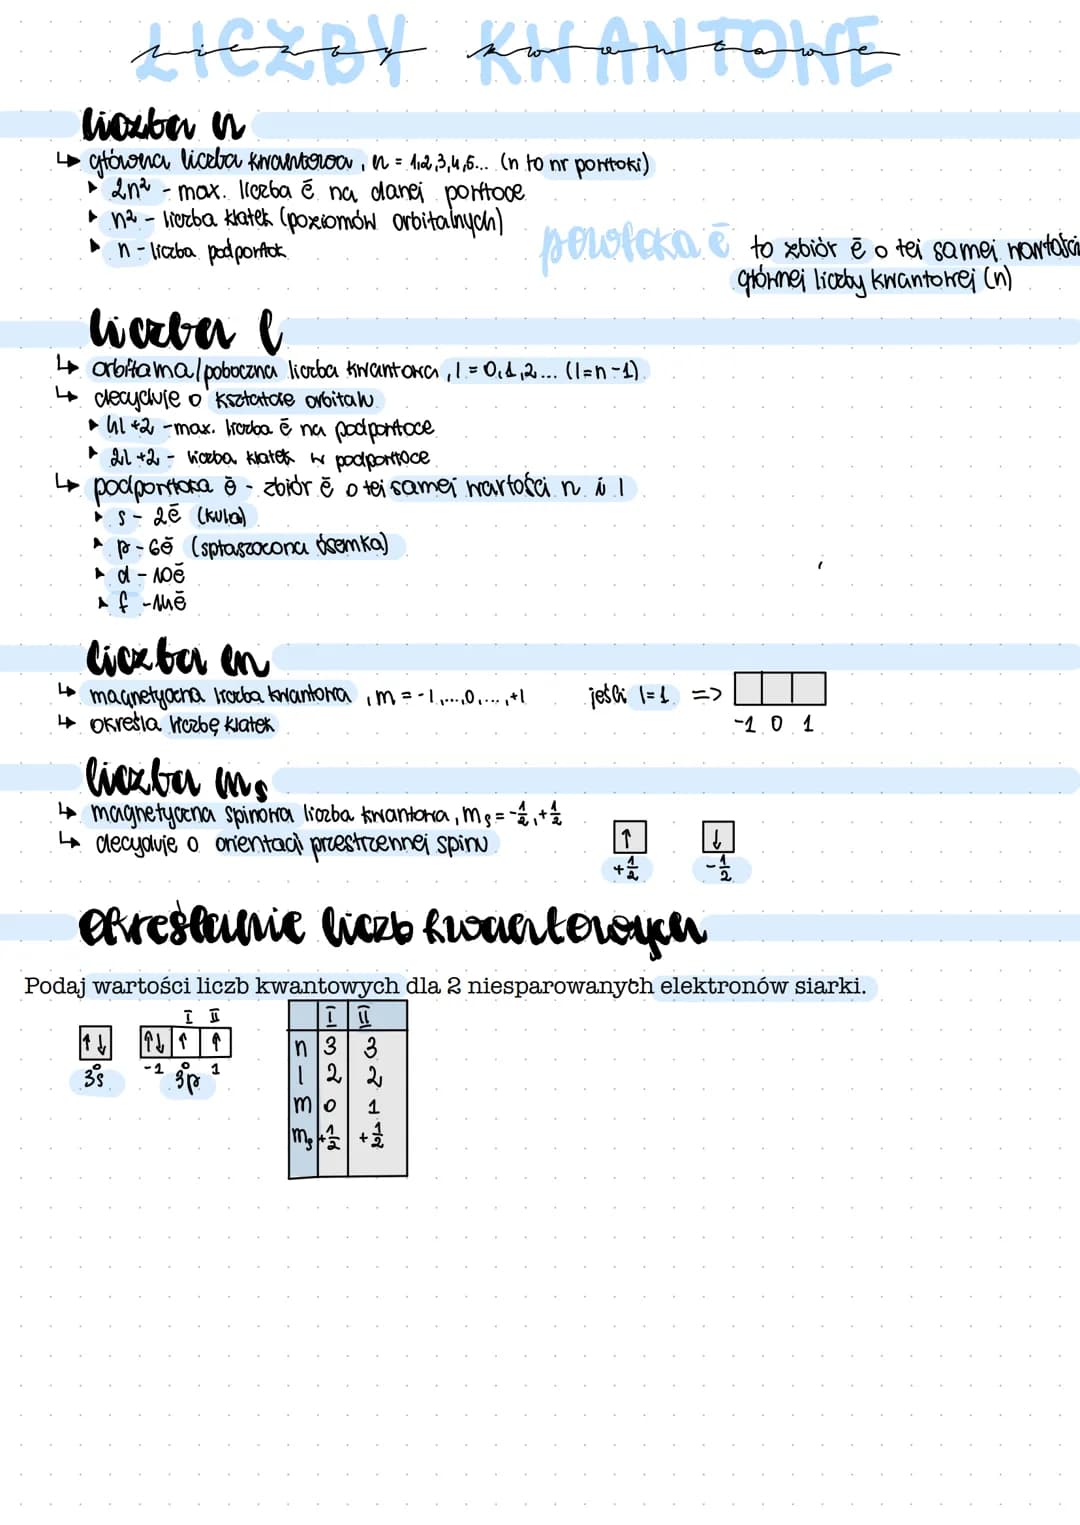 LICZBY KWANTOWE
liczby kwantowe
liczba n
↳ główna liczba kwantowa, n = 1,2,3,4,5... (n to nr powłoki)
▸ 2n² - max. liczba ē na danej powłoce
▸ n² - liczba klatek (poziomów orbitalnych)
▸ n - liczba podpowłok
powłoka ē to zbiór ē o tej samej wartości
głównej liczby kwantowej (n)
liczba l
↳ orbitalna/poboczna liczba kwantowa, l = 0,1,2... (l=n-1)
↳ decyduje o kształcie orbitalu
▸ 4l+2 - max. liczba ē na podpowłoce
▸ 2l+2 - liczba klatek w podpowłoce
↳ podpowłoka ē - zbiór ē o tej samej wartości n i l
▸ s - 2ē (kula)
▸ p - 6ē (spłaszczona ósemka)
▸ d - 10ē
▸ f - 14ē
liczba m
↳ magnetyczna liczba kwantowa, m = -l,...,0,...,+l
jeśli l=1 =>
-1 0 1
↳ określa liczbę klatek
liczba ms
↳ magnetyczna spinowa liczba kwantowa, ms = -½, +½
↳ decyduje o orientacji przestrzennej spinu
↑ ↓
+½ -½
określanie liczb kwantowych
Podaj wartości liczb kwantowych dla 2 niesparowanych elektronów siarki.
I II
↑↓ ↑↓ ↑ ↑
-1 0 1
3s 3p
I II
n 3 3
l 2 2
m 0 1
ms +½ +½